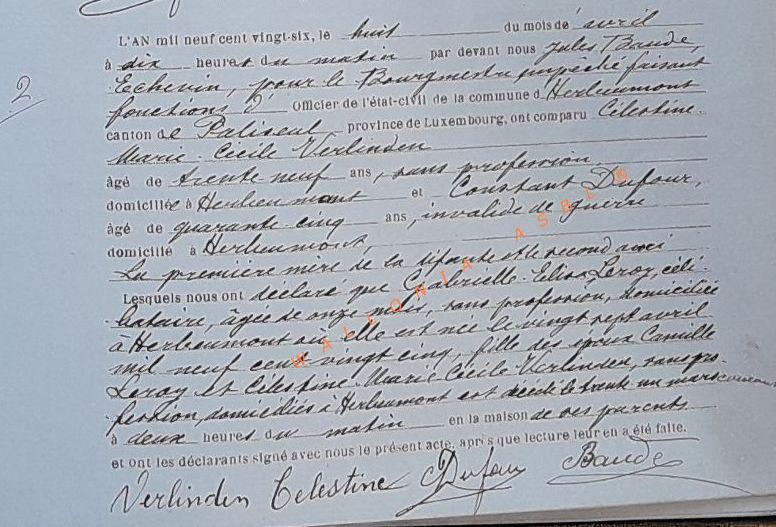 2
L'AN mil neuf cent vingt-six, le huit du mois de avril
à dix heures du matin par devant nous Jules Baude,
Echevin, pour le Bourgmestre empêché faisant
fonctions d' Officier de l'état-civil de la commune d'Herbeumont
canton de Paliseul province de Luxembourg, ont comparu Célestine
Marie Cécile Verlinden
âgé de trente neuf ans, sans profession
domiciliée à Herbeumont et Constant Dufour,
âgé de quarante cinq ans, invalide de guerre
domicilié à Herbeumont,
La première mère de la défunte et le second ami
Lesquels nous ont déclaré que Gabrielle Elisa Leroy, céli-
bataire, âgée de onze mois, sans profession, domiciliée
à Herbeumont où elle est née le vingt sept avril
mil neuf cent vingt cinq, fille des époux Camille
Leroy et Célestine Marie Cécile Verlinden, sans pro-
fession, domiciliés à Herbeumont est décédée le trente un mars
à deux heures du matin en la maison de ses parents
et ont les déclarants signé avec nous le présent acte, après que lecture leur en a été faite.
Verlinden Celestine Dufour Baude
WALLONIA ASBL